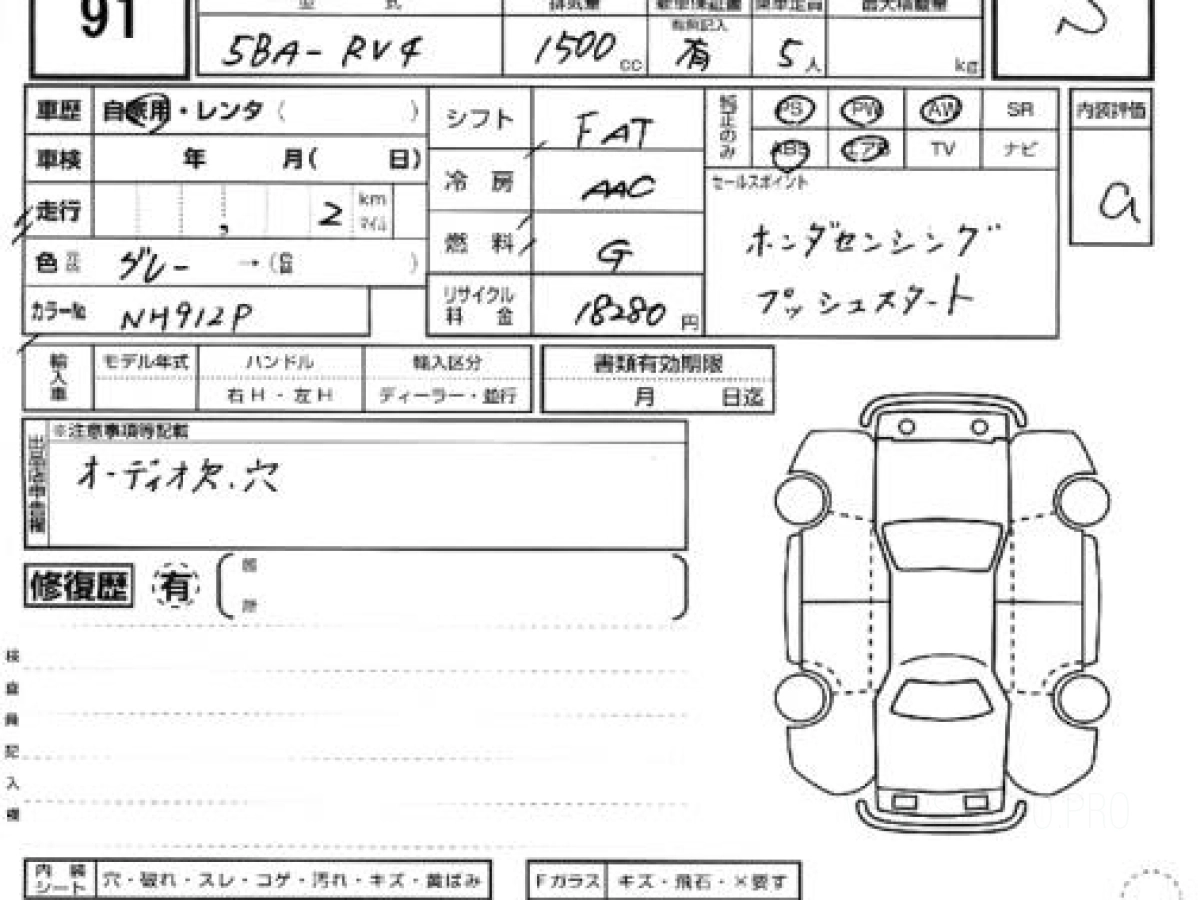 91
型 式
排気量
新車保証書
乗車定員
最大積載量
5BA-RV4
1500cc
有無記入
有
5人
kg
N
車歴
自家用・レンタ( )
シフト
FAT
純正のみ
PS PW AW SR
ABS エアB TV ナビ
内装評価
a
車検
年 月( 日)
冷房
AAC
セールスポイント
走行
, 2 km マイル
ホンダセンシング
プッシュスタート
燃料
G
色
グレー →( )
カラー№
NH912P
リサイクル料金
18280円
輸入車
モデル年式
ハンドル
輸入区分
右H・左H
ディーラー・並行
書類有効期限
月 日迄
出品店申告欄
※注意事項等記載
オーディオ欠.穴
修復歴
有
検査員記入欄
内装シート
穴・破れ・スレ・コゲ・汚れ・キズ・黄ばみ
Fガラス
キズ・飛石・×要す
.PRO